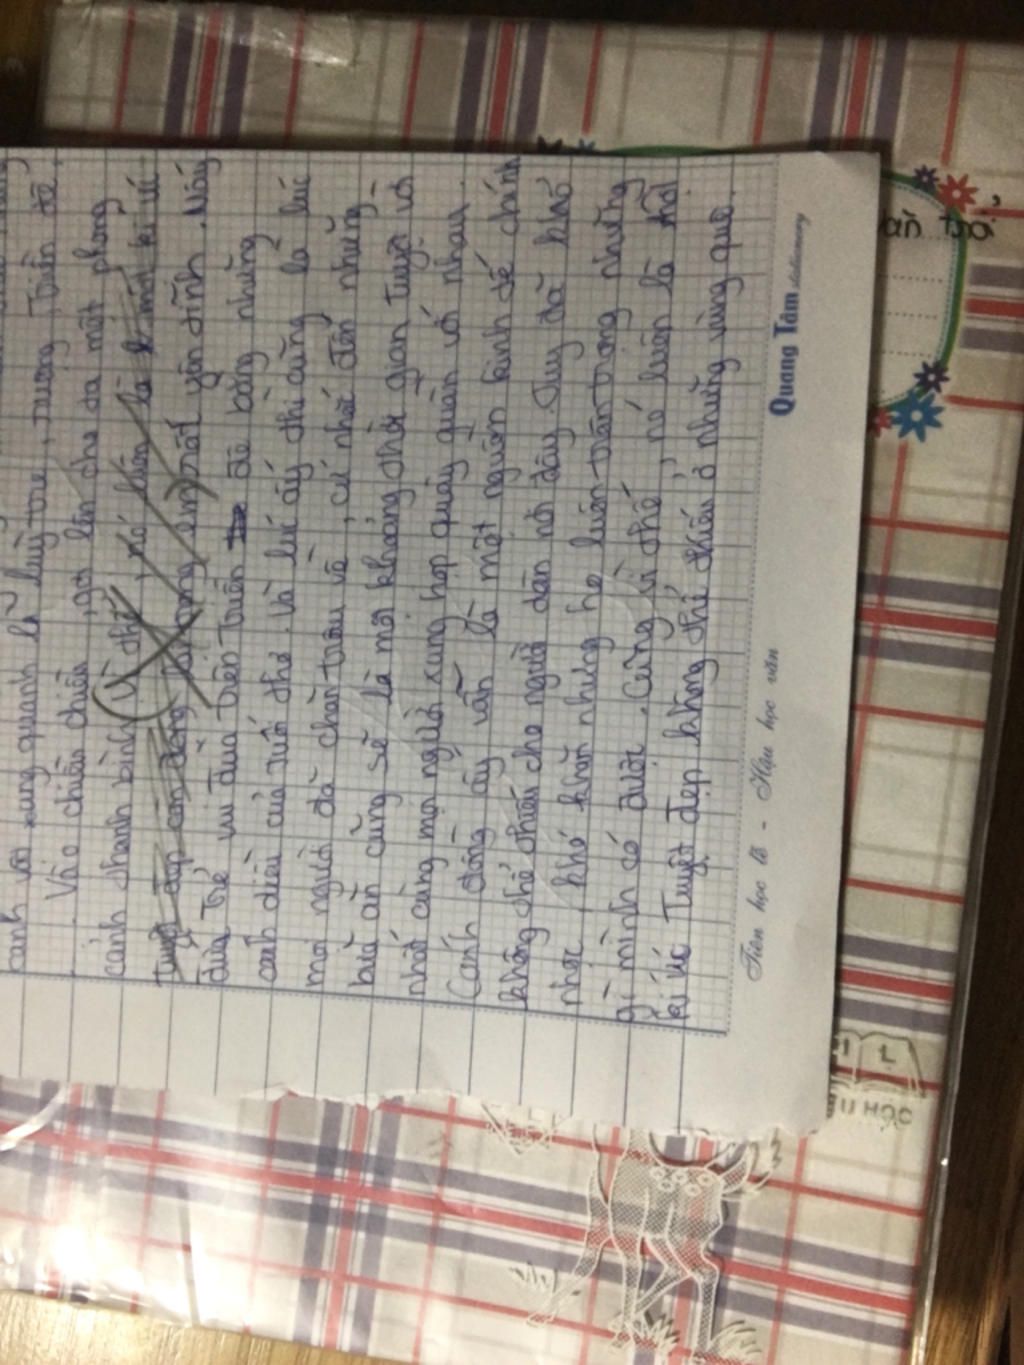 canh vào xung quanh là luỹ tre, ruộng
. Vào chiều chiều, gợi lên cho ta một phong
cảnh thanh bình (Vì thế, nó luôn là kí ức
tuyệt đẹp
đứa trẻ vui đùa trên triền đê bằng những
canh diều của tuổi thơ. Và lúc ấy thì cũng là lúc
mọi người đã chăn trâu về, có nhớ đến những
bữa ăn cũng sẽ là một khoảng thời gian tuyệt vời
nhất cùng mọi người xung họp quây quần với nhau.
Cánh đồng ấy vẫn là một nguồn kinh tế chính
không thể thiếu cho người dân nơi đây. Tuy đã khó
nhọc, khó khăn nhưng họ luôn trân trọng những
gì mình có được. Cũng vì thế, nó luôn là một
kí ức tuyệt đẹp không thể thiếu ở những vùng quê.
Quang Tâm stationery
Tiên học lễ - Hậu học văn
II HỌC